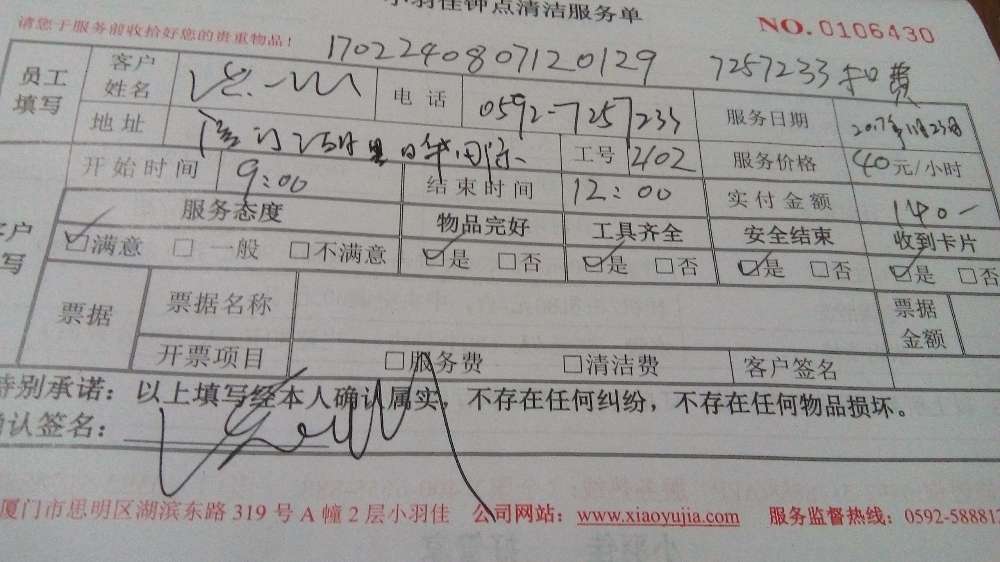 小羽佳钟点清洁服务单
请您于服务前收拾好您的贵重物品！
NO. 0106430
1702240807120129 7257233 扣费
员工填写 客户姓名 电话 0592-7257233 服务日期 2017年11月23日
地址 工号 2102 服务价格 40元/小时
开始时间 9:00 结束时间 12:00 实付金额 140-
服务态度 物品完好 工具齐全 安全结束 收到卡片
☑满意 □一般 □不满意 ☑是 □否 ☑是 □否 ☑是 □否 ☑是 □否
票据 票据名称 票据金额
开票项目 □服务费 □清洁费 客户签名
特别承诺：以上填写经本人确认属实，不存在任何纠纷，不存在任何物品损坏。
确认签名：
厦门市思明区湖滨东路 319 号 A 幢 2 层小羽佳 公司网站：www.xiaoyujia.com 服务监督热线：0592-588812